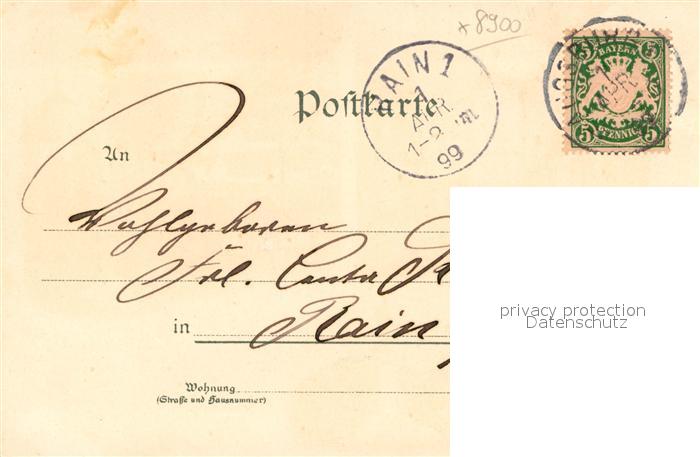 +8900
RAIN 1
1
APR
1-2 N
99
AUGSBURG
1
APR
5 BAYERN 5
5 PFENNIG 5
Postkarte
An
Wohlgeboren
Frl. Centa
in Rain
Wohnung
(Straße und Hausnummer)
privacy protection
Datenschutz